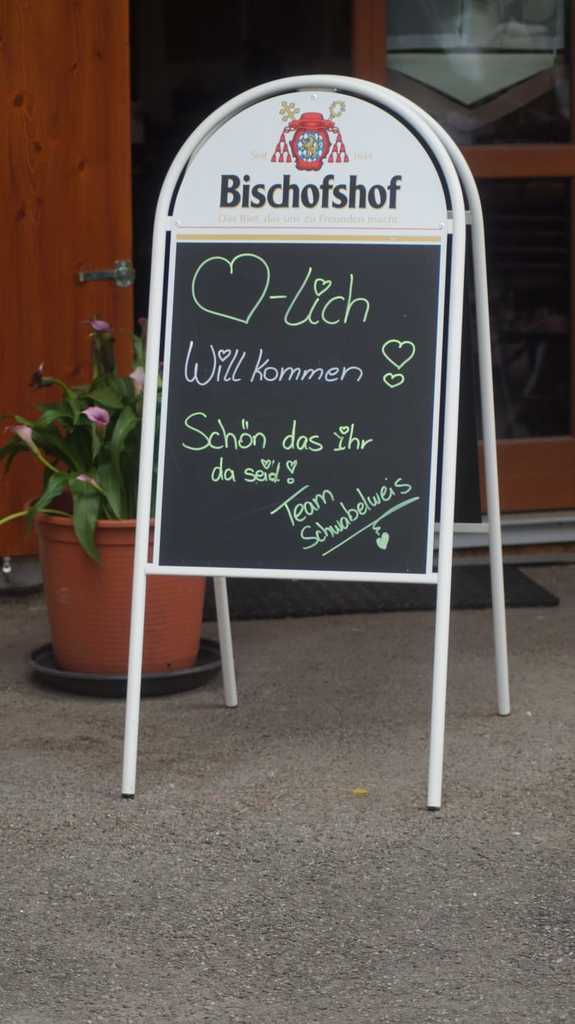 Seit 1649
Bischofshof
Das Bier, das uns zu Freunden macht
♡-lich
Willkommen !
Schön das ihr
da seid!
Team
Schwabelweis